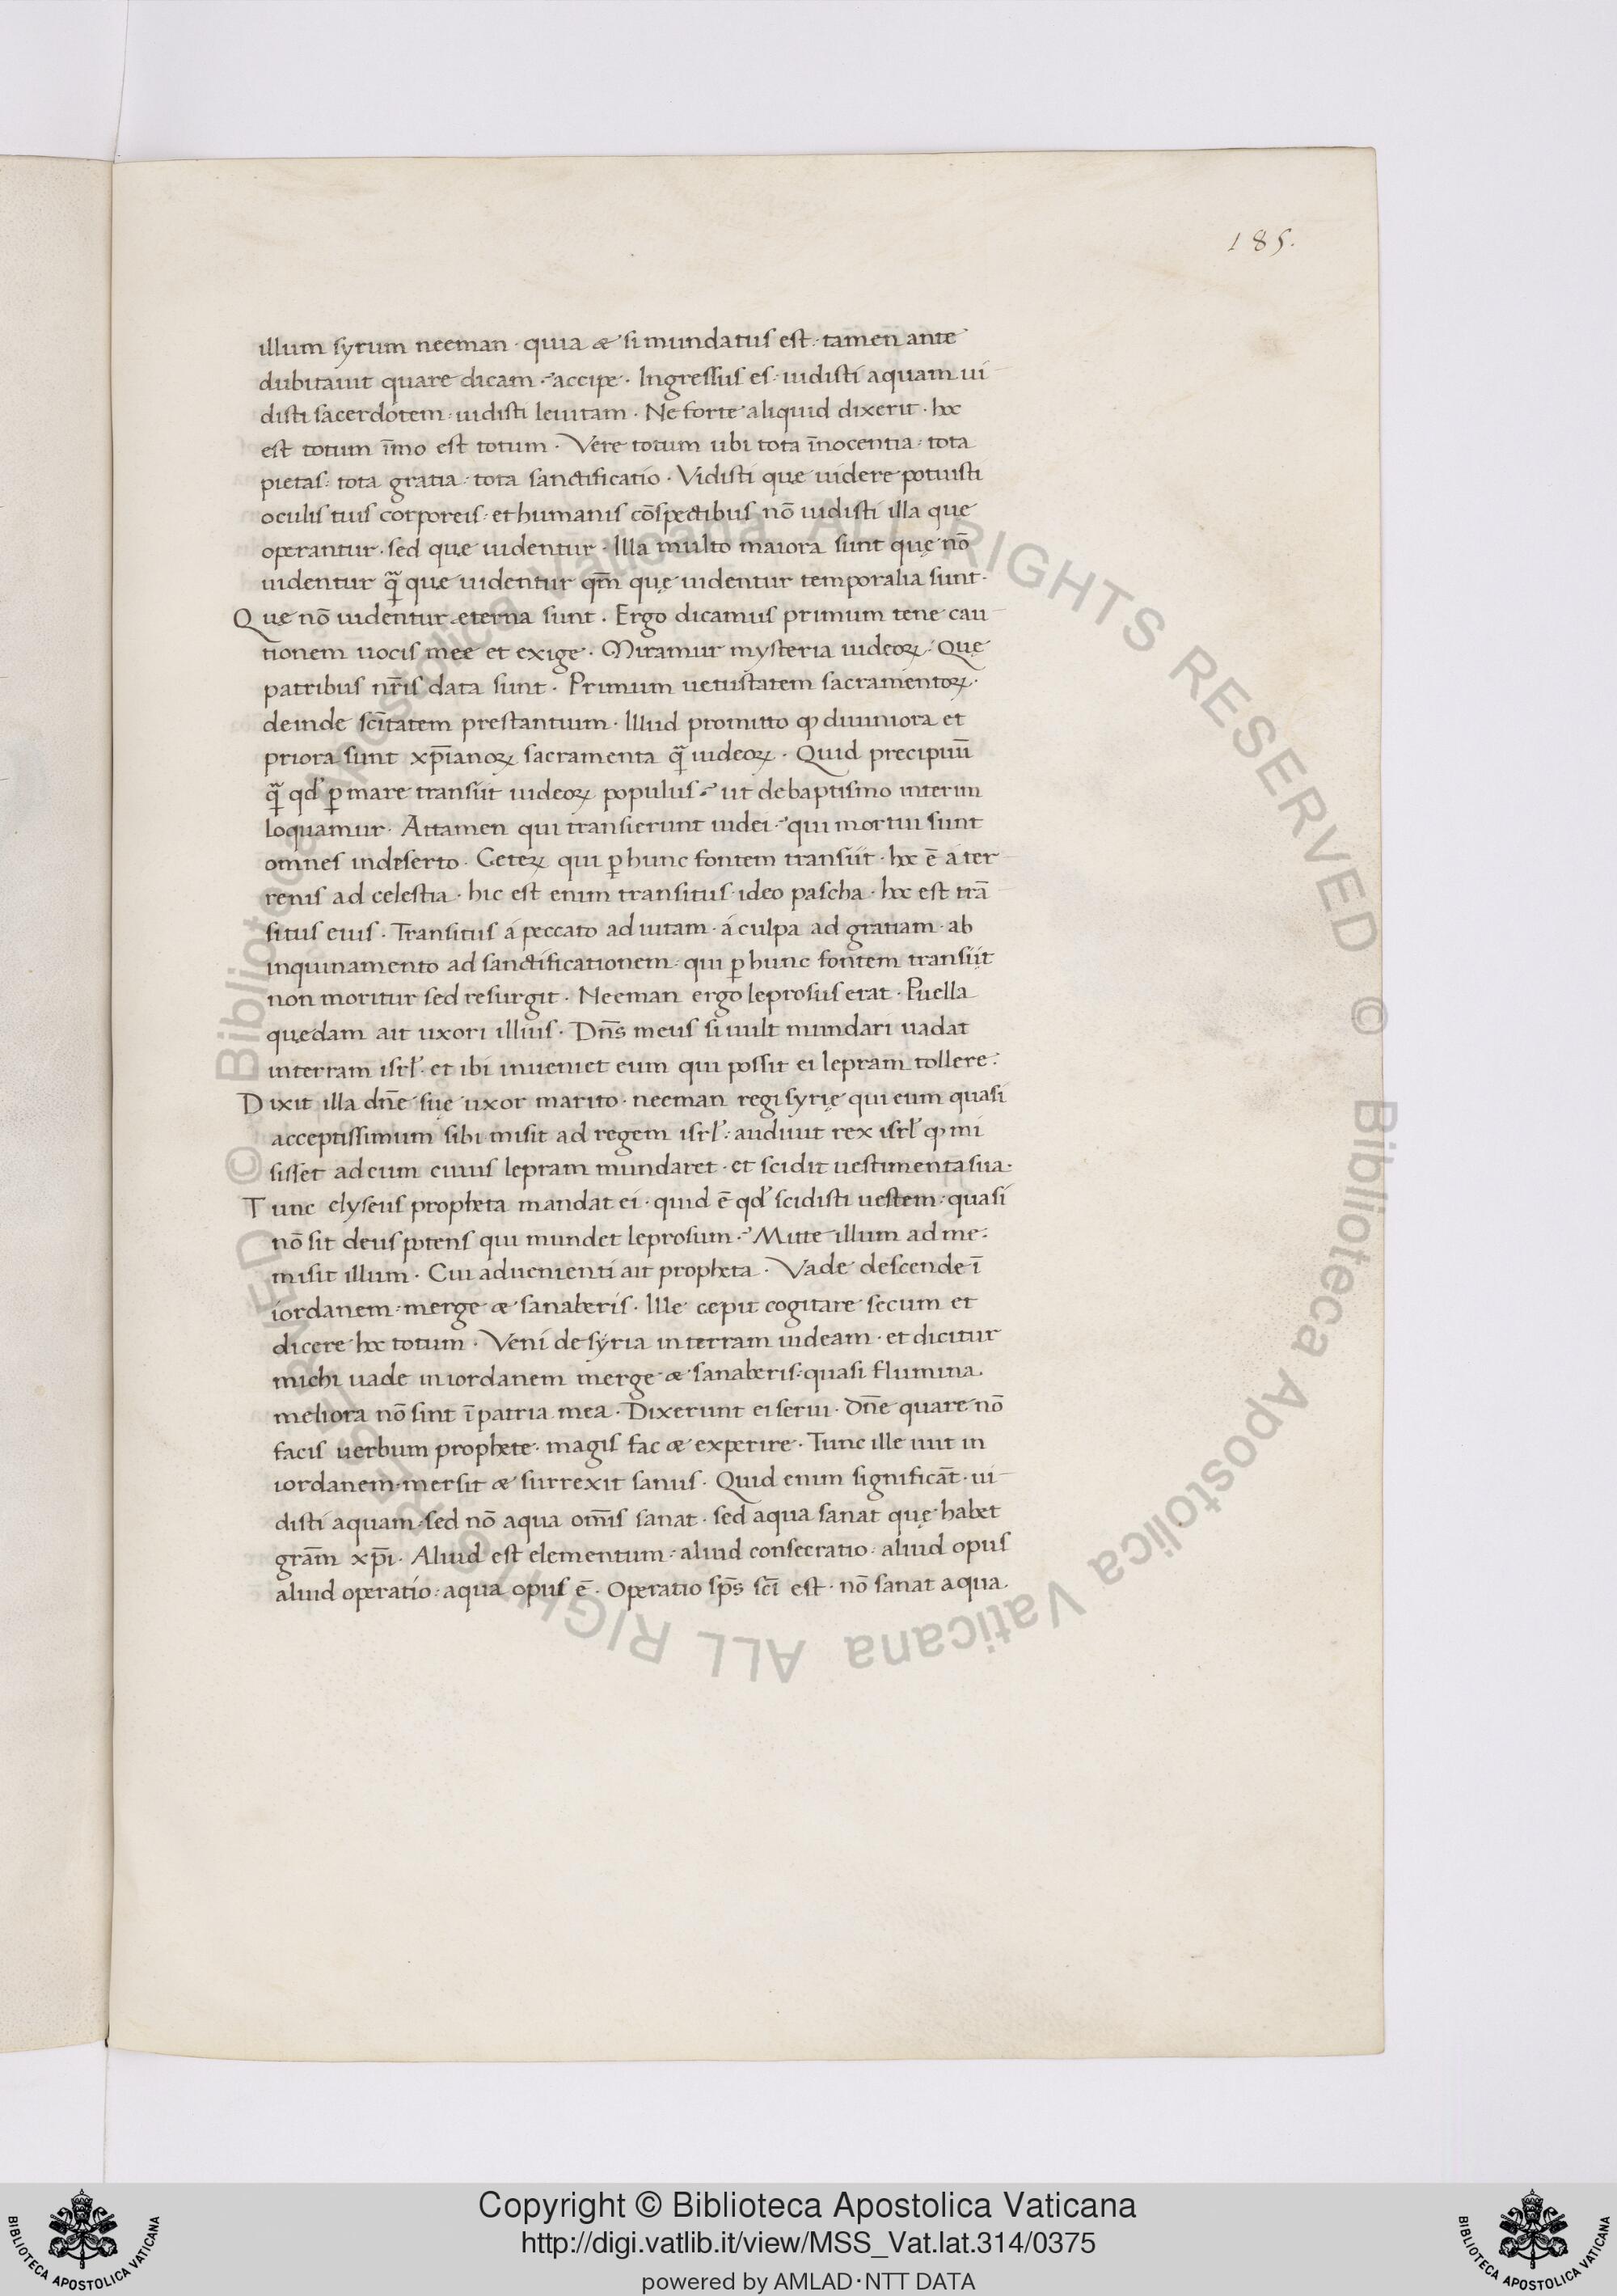 185.
illum syrum neeman · quia & si mundatus est · tamen ante
dubitauit quare dicam · accipe · Ingressus es · uidisti aquam ui
disti sacerdotem · uidisti leuitam · Ne forte aliquid dixerit · hoc
est totum īmo est totum · Vere totum ubi tota īnocentia · tota
pietas · tota gratia · tota sanctificatio · Vidisti quę uidere potuisti
oculis tuis corporeis · et humanis cōspectibus nō uidisti illa que
operantur · sed quę uidentur · Illa multo maiora sunt quę nō
uidentur q̄ȝ quę uidentur qm̄ quę uidentur temporalia sunt ·
Quę nō uidentur eterna sunt · Ergo dicamus primum tene cau
tionem uocis meę et exige · Miramur mysteria iudeoꝝ · Quę
patribus nr̄is data sunt · Primum uetustatem sacramentoꝝ ·
deinde scītatem prestantium · Illud promitto ꝙ diuiniora et
priora sunt xp̄ianoꝝ sacramenta q̄ȝ iudeoꝝ · Quid precipuū
q̄ȝ qd' ꝑ mare transiit iudeoꝝ populus · ut de baptismo interim
loquamur · Attamen qui transierunt iudei · qui mortui sunt
omnes in deserto · Ceteꝝ qui ꝑ hunc fontem transiit · hoc ē a ter
renis ad celestia · hic est enim transitus · ideo pascha · hoc est trā
situs eius · Transitus á peccato ad uitam · á culpa ad gratiam · ab
inquinamento ad sanctificationem · qui ꝑ hunc fontem transiit
non moritur sed resurgit · Neeman ergo leprosus erat · Puella
quędam ait uxori illius · Dn̄s meus si uult mundari uadat
in terram isrl' · et ibi inueniet eum qui possit ei lepram tollere ·
Dixit illa dn̄e suę uxor marito · neeman regi syrię qui eum quasi
acceptissimum sibi misit ad regem isrl' · audiuit rex isrl' ꝙ mi
sisset ad eum cuius lepram mundaret · et scidit uestimenta sua ·
Tunc elyseus propheta mandat ei · quid ē qd' scidisti uestem · quasi
nō sit deus potens qui mundet leprosum · Mitte illum ad me ·
misit illum · Cui aduenienti ait propheta · Vade descende ī
iordanem · merge & sanaberis · Ille cepit cogitare secum et
dicere hoc totum · Veni de syria in terram iudeam · et dicitur
michi uade in iordanem merge & sanaberis · quasi flumina
meliora nō sint ī patria mea · Dixerunt ei serui · dn̄e quare nō
facis uerbum prophetę · magis fac & experire · Tunc ille iuit in
iordanem · mersit & surrexit sanus · Quid enim significāt · ui
disti aquam · sed nō aqua om̄is sanat · sed aqua sanat quę habet
grām xp̄i · Aliud est elementum · aliud consecratio · aliud opus
aliud operatio · aqua opus ē · Operatio sp̄s scī est · nō sanat aqua
© Biblioteca Apostolica Vaticana ALL RIGHTS RESERVED © Biblioteca Apostolica Vaticana ALL RIGHTS RESERVED
Copyright © Biblioteca Apostolica Vaticana
http://digi.vatlib.it/view/MSS_Vat.lat.314/0375
powered by AMLAD·NTT DATA
BIBLIOTECA APOSTOLICA VATICANA
BIBLIOTECA APOSTOLICA VATICANA